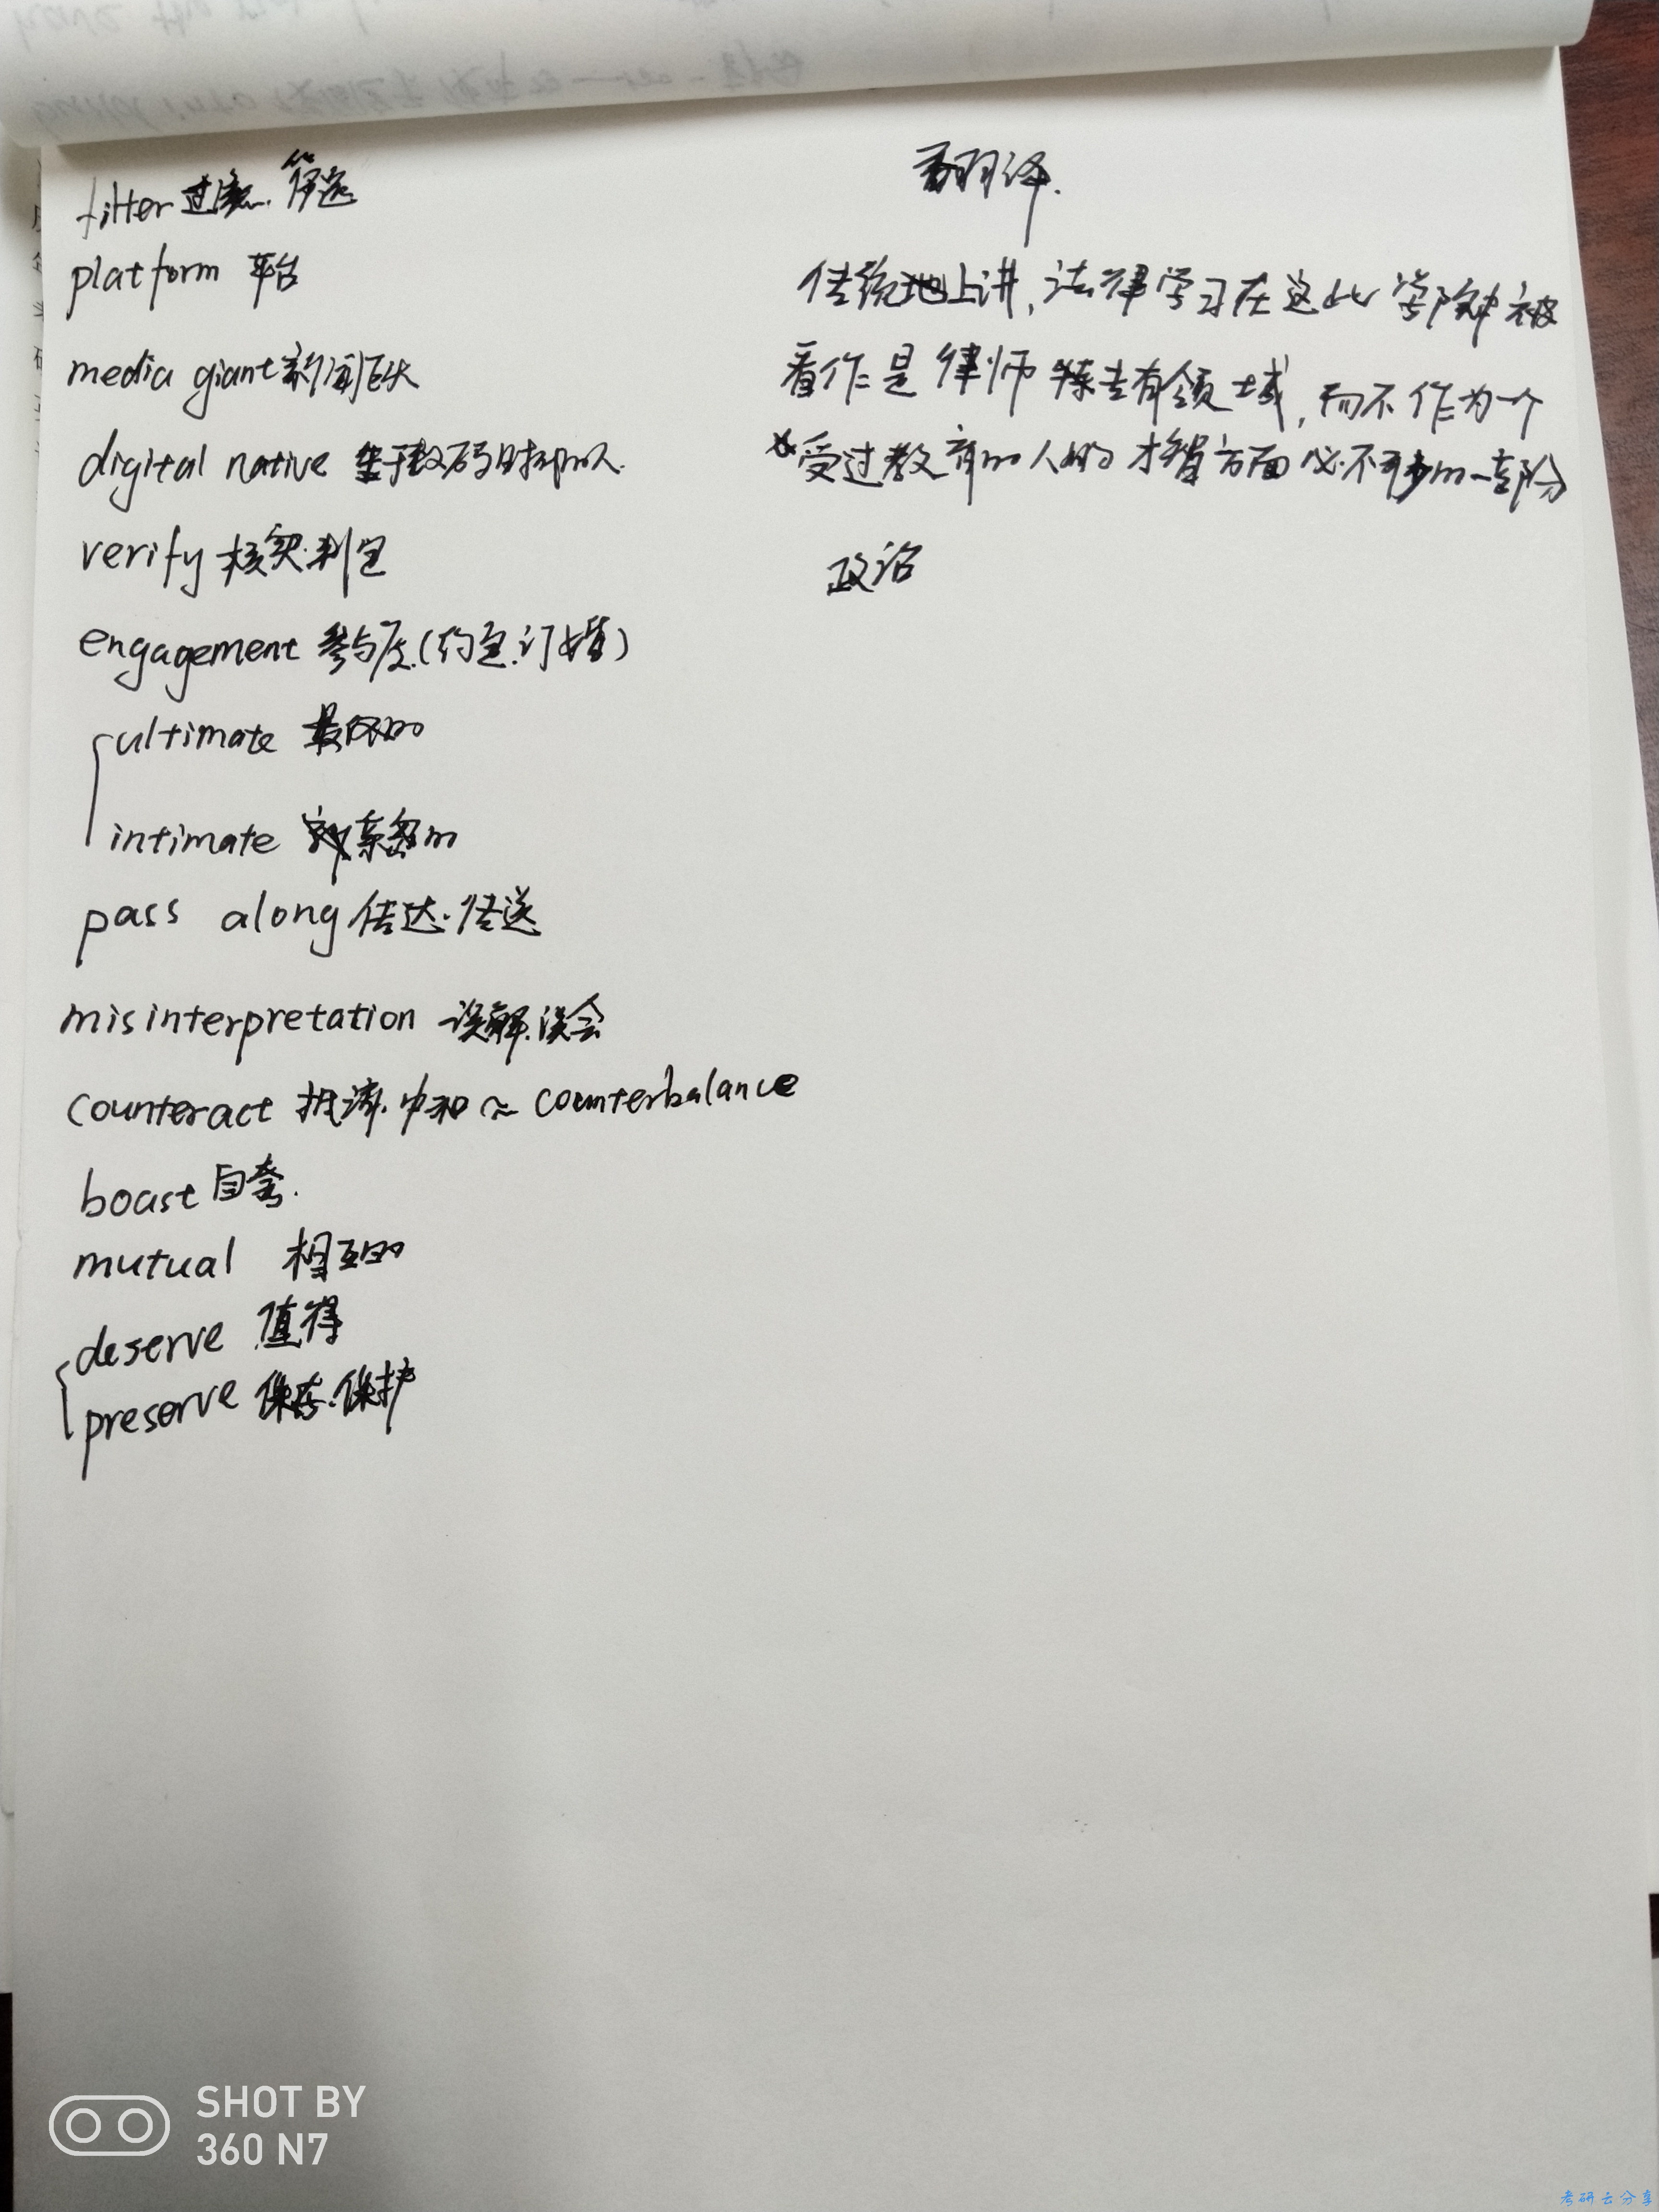 filter 过滤.筛选
platform 平台
media giant 新闻巨头
digital native 生于数码时代的人.
verify 核实.判定
engagement 参与度.(约定.订婚)
ultimate 最终的
intimate 亲密的
pass along 传达.传送
misinterpretation 误解.误会
counteract 抵消.中和 ≈ counterbalance
boast 自夸.
mutual 相互的
deserve 值得
preserve 保存.保护
翻译.
传统地上讲,法律学习在这些学院中被
看作是律师专有领域,而不作为一个
受过教育的人的才智方面必不可少的一部分
政治
SHOT BY
360 N7
考研云分享